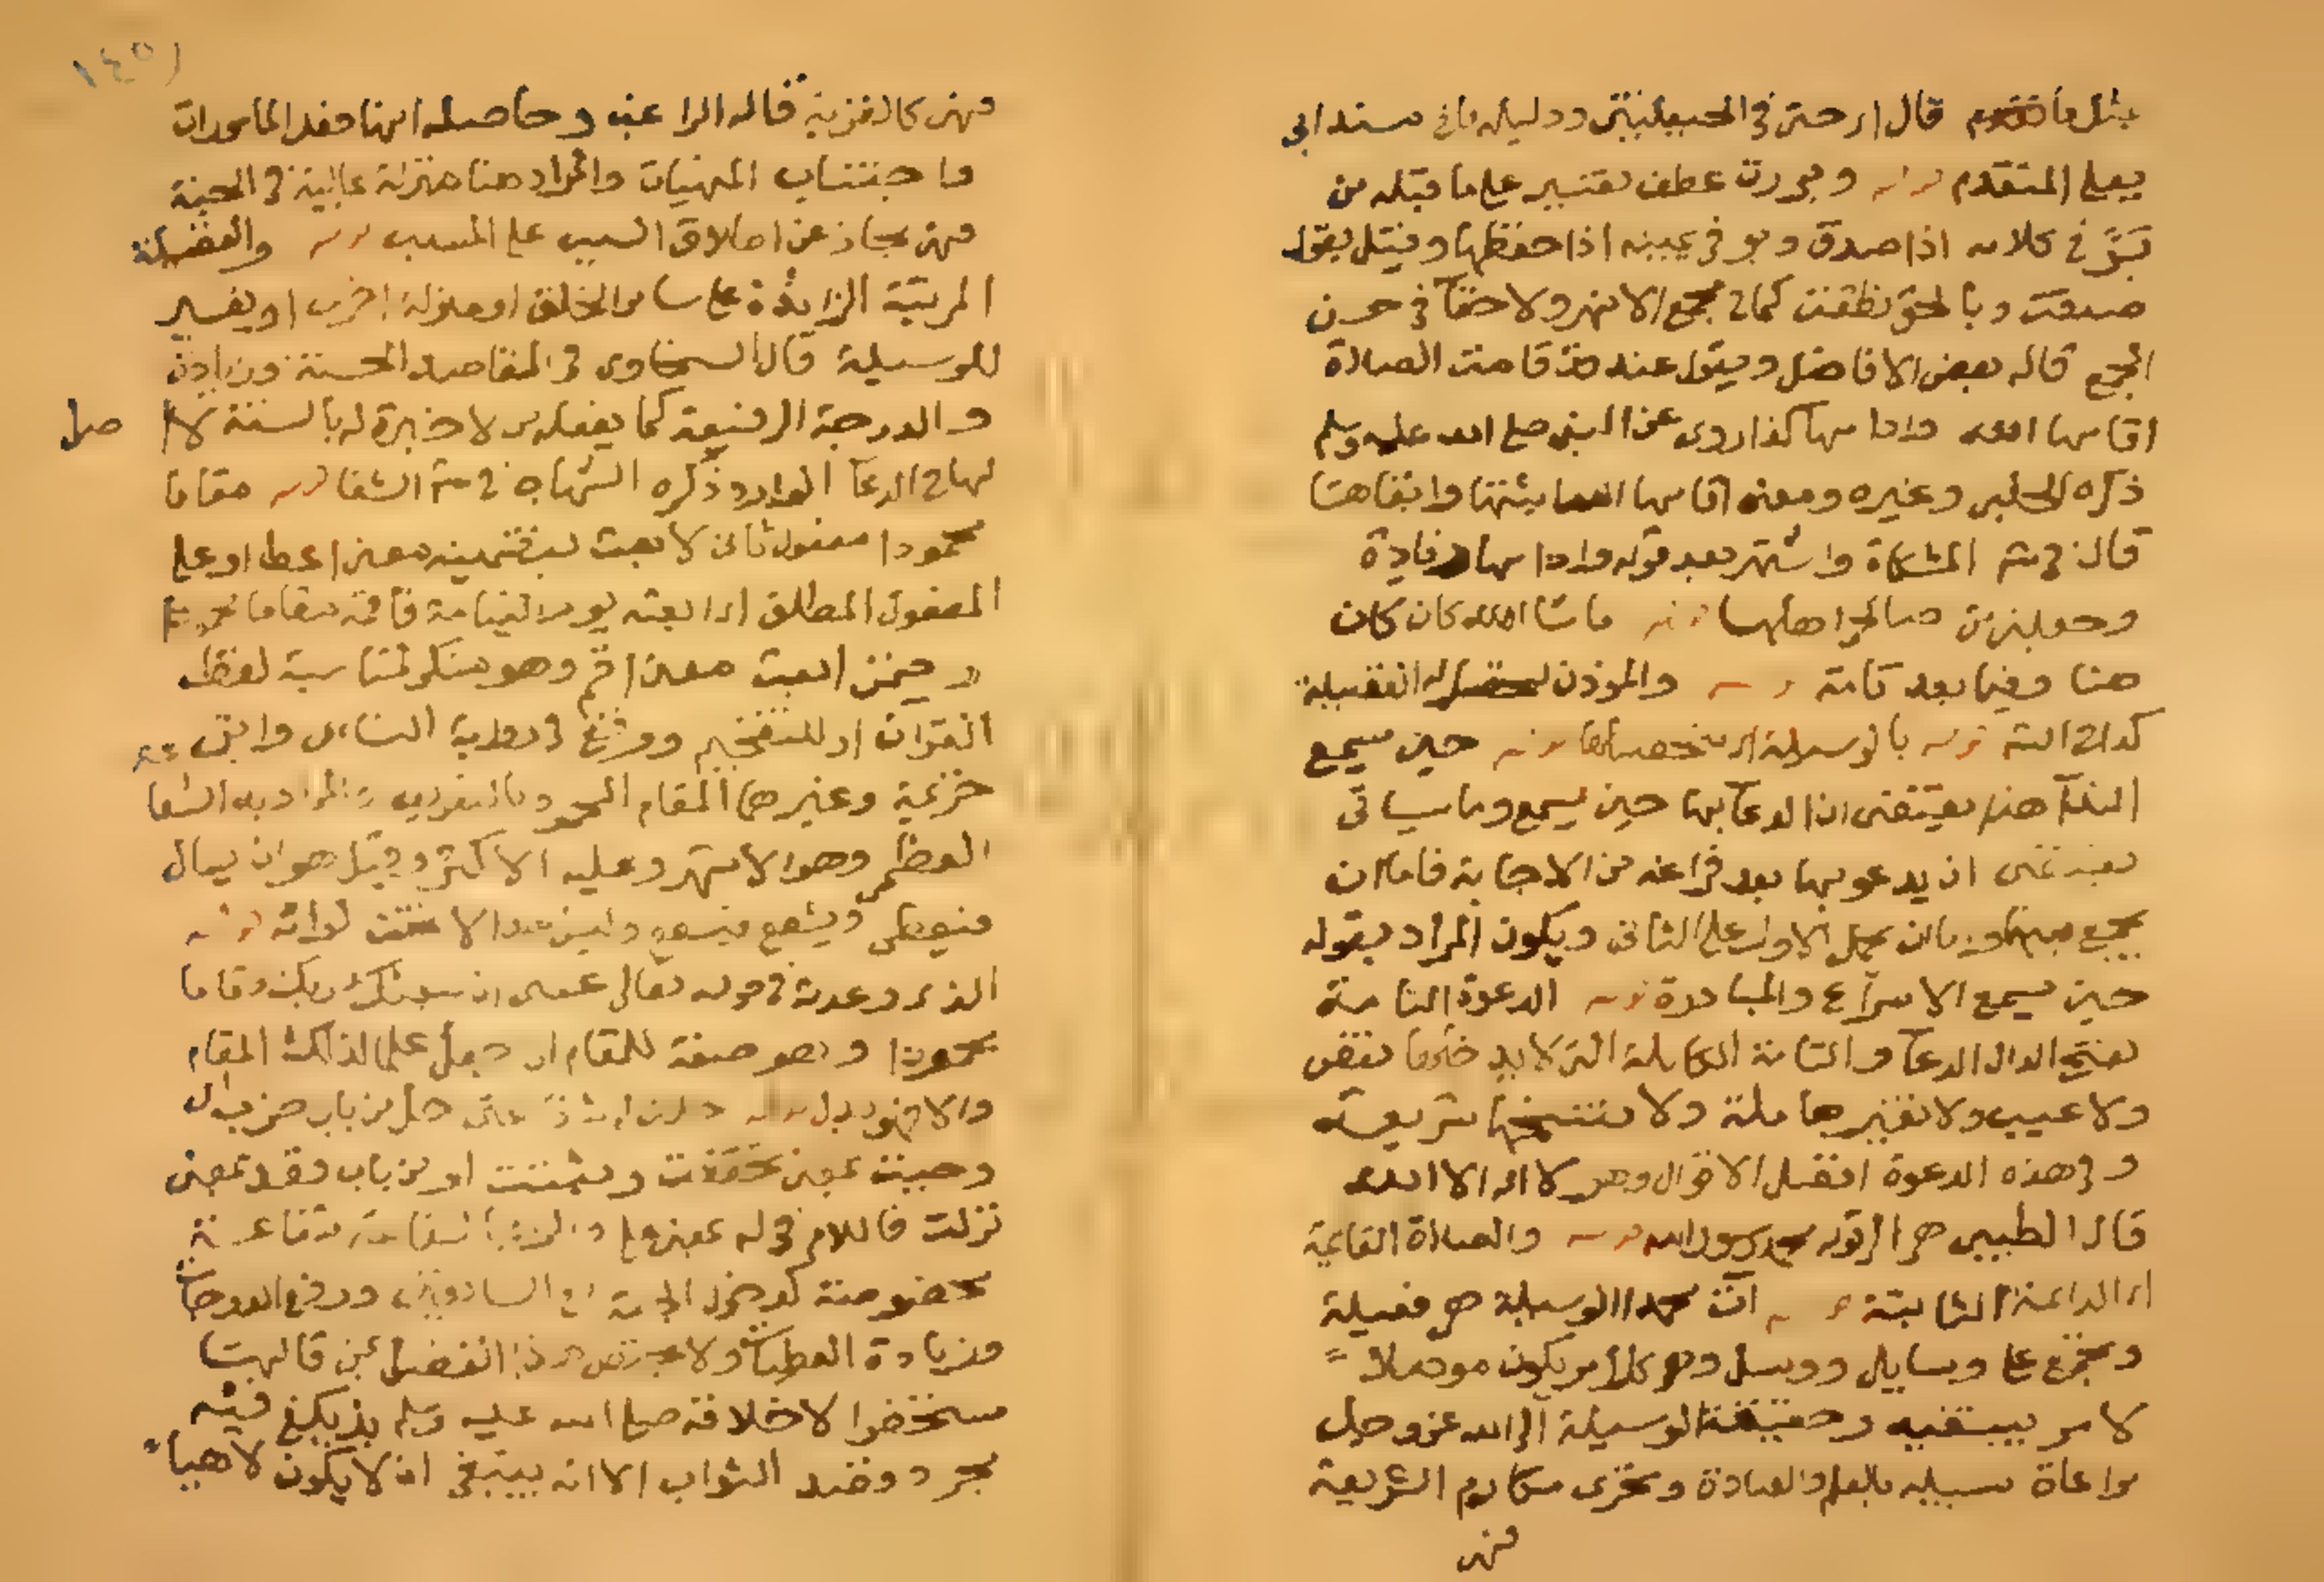 بمثل ما تقدم قال ارحتى في الحيعلتين ودليله ما في مسند ابي
يعلى المتقدم قوله وبررت عطف تفسير على ما قبله من
بَرَّ في كلامه اذا صدق وبر في يمينه اذا حفظها وقيل يقول
صدقت وبالحق نطقت كما في مجمع الانهر ولا حقا في
المجمع قاله بعض الافاضل ويقول عند قد قامت الصلاة
اقامها الله وادامها كذا روى عن النبي صلى الله عليه وسلم
ذكره الحلبي وغيره ومعنى اقامها الله اثبتها وابقاها
قال في شرح المشكاة واشتهر بعد قوله وادامها زيادة
وجعلني من صالحي اهلها قوله ما شا الله كان كان
هنا وفيما بعد تامة قوله والموذن الفضيلة
كذا في الشرح قوله بالوسيلة اي بخصيلتها قوله حين يسمع
الندآ هذا يقتضى ان الدعآ بها حين يسمع وما سياتى
يقتضى ان يدعو بها بعد فراغه من الاجابة فاما ان
يجمع بينهما بان يحمل الاول على الثانى ويكون المراد بقوله
حين يسمع الاسراع والمبادرة قوله الدعوة التامة
بفتح الدال الدعآ والتامة الكاملة التى لا يدخلها نقص
ولا عيب ولا تغيرها ملة ولا تنسخها شريعة
وفي هذه الدعوة افضل الاقوال وهو لا اله الا الله
قال الطيبى هى الى قوله محمد رسول الله قوله والصلاة القايمة
اى الدائمة الثابتة قوله آت محمدا الوسيلة هى فعيلة
وتجمع على وسايل ووسل وهى كل امر يكون موصلا
لامر يبتغيه وحقيقة الوسيلة الى الله عز وجل
مراعاة سبيله بالعلم والعبادة وتحرى مكارم الشريعة
فهى
١٤٥١
فهى كالقربة قاله الراغب وحاصله انها فعل المامورات
واجتناب المنهيات والمراد هنا منزلة عالية في الجنة
فهى مجاز من اطلاق السبب على المسبب قوله والفضيلة
المرتبة الزايدة على ساير الخلق او منزلة اخرى او تفسير
للوسيلة قال السخاوى في المقاصد الحسنة وزيادة
والدرجة الرفيعة كما يفعله من لا خبرة له بالسنة لا اصل
لها في الدعآ الوارد ذكره الشهاب في شرح الشفا قوله مقاما
محمودا مفعول ثانى لابعث بتضمينه معنى اعطا او على
المفعول المطلق اى ابعثه يوم القيامة فاقمه مقاما
وضمن ابعث معنى اقم وهو منكر لمناسبة لفظ
القران او للتفخيم ووقع في رواية النساى وابن
خزيمة وغيرهما المقام المحمود بالتعريف والمراد به الشفا
العظمى وهو الاشهر وعليه الاكثر وقيل هو ان يسال
فيعطى ويشفع فيشفع وليس احد الا تحت لوائه قوله
الذى وعدته في قوله تعالى عسى ان يبعثك ربك مقاما
محمودا وهو صفة للمقام ان جعل علما لذلك المقام
والا فهو بدل قوله حلت حل من باب ضرب اى
وجبت بمعنى تحققت وثبتت او من باب قعد بمعنى
نزلت فاللام في له بمعنى على شفاعة
مخصوصة كدخول الجنة مع السابقين ورفع الدرجات
وزيادة العطيات ولا يختص هذا الفضل بمن قالها
مستحضرا لاجلاله صلى الله عليه وسلم بل يكفى فيه
مجرد قصد الثواب الا انه ينبغى ان لا يكون لاهيا